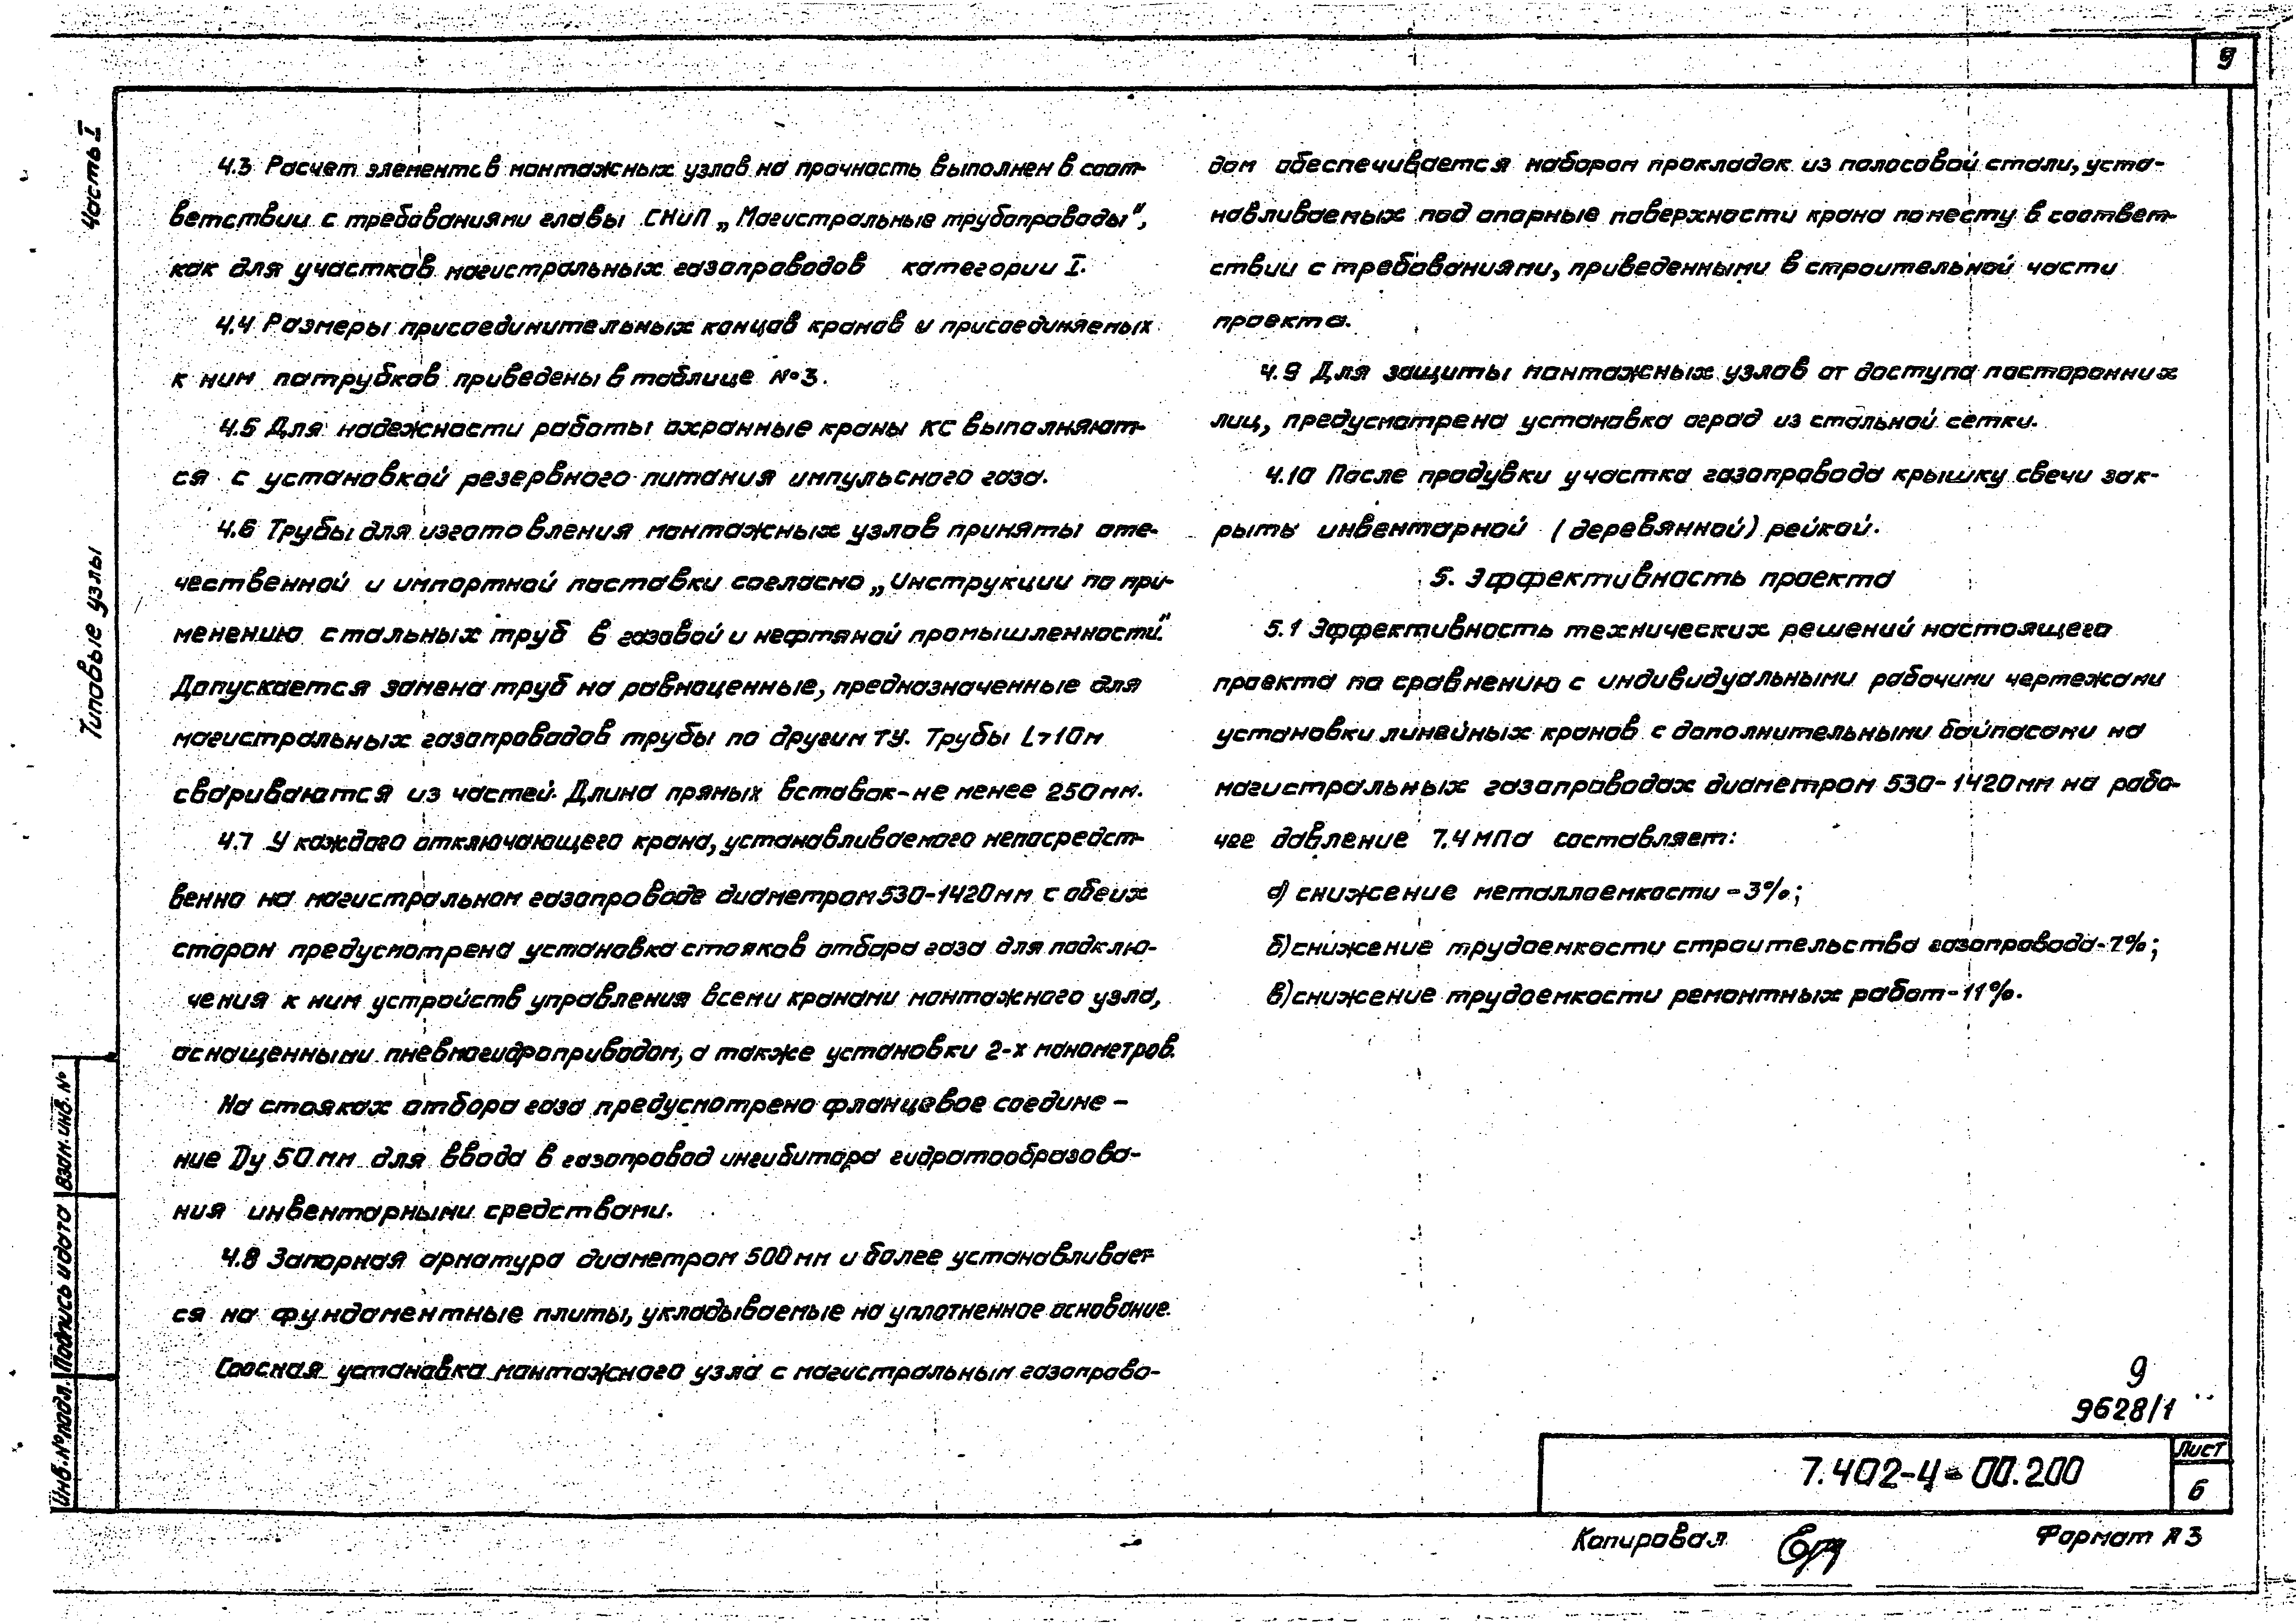 9
Часть I
Типовые узлы
4.3 Расчет элементов монтажных узлов на прочность выполнен в соот-
ветствии с требованиями главы СНиП „Магистральные трубопроводы",
как для участков магистральных газопроводов категории I.
4.4 Размеры присоединительных концов кранов и присоединяемых
к ним патрубков приведены в таблице №3.
4.5 Для надежности работы охранные краны КС выполняют-
ся с установкой резервного питания импульсного газа.
4.6 Трубы для изготовления монтажных узлов приняты оте-
чественной и импортной поставки согласно „Инструкции по при-
менению стальных труб в газовой и нефтяной промышленности".
Допускается замена труб на равноценные, предназначенные для
магистральных газопроводов трубы по другим ТУ. Трубы L>10м
свариваются из частей. Длина прямых вставок-не менее 250мм.
4.7 У каждого отключающего крана, устанавливаемого непосредст-
венно на магистральном газопроводе диаметром 530-1420мм с обеих
сторон предусмотрена установка стояков отбора газа для подклю-
чения к ним устройств управления всеми кранами монтажного узла,
оснащенными пневмогидроприводом, а также установки 2-х манометров.
На стояках отбора газа предусмотрено фланцевое соедине-
ние Dу 50мм для ввода в газопровод ингибитора гидратообразова-
ния инвентарными средствами.
4.8 Запорная арматура диаметром 500мм и более устанавливает-
ся на фундаментные плиты, укладываемые на уплотненное основание.
Соосная установка монтажного узла с магистральным газопрово-
дом обеспечивается набором прокладок из полосовой стали, уста-
навливаемых под опорные поверхности крана по месту в соответ-
ствии с требованиями, приведенными в строительной части
проекта.
4.9 Для защиты монтажных узлов от доступа посторонних
лиц, предусмотрена установка оград из стальной сетки.
4.10 После продувки участка газопровода крышку свечи зак-
рыть инвентарной (деревянной) рейкой.
5. Эффективность проекта
5.1 Эффективность технических решений настоящего
проекта по сравнению с индивидуальными рабочими чертежами
установки линейных кранов с дополнительными байпасами на
магистральных газопроводах диаметром 530-1420мм на рабо-
чее давление 7.4МПа составляет:
а) снижение металлоемкости -3%;
б) снижение трудоемкости строительства газопровода-7%;
в) снижение трудоемкости ремонтных работ-11%.
Инв.№подл. Подпись и дата Взам.инв.№
9
9628/1
7.402-4-00.200
Лист
6
Копировал
Формат А3